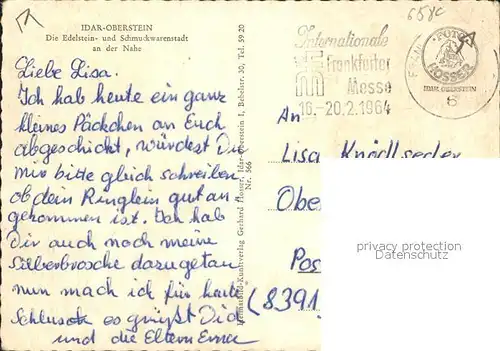 IDAR-OBERSTEIN
Die Edelstein- und Schmuckwarenstadt
an der Nahe
Liebe Lisa.
Ich hab heute ein ganz
kleines Päckchen an Euch
abgeschickt, würdest Du
mir bitte gleich schreiben
ob dein Ringlein gut an
gekommen ist. Ich hab
Dir auch noch meine
Silberbrosche dazugetan
nun mach ich für heute
Schluss es grüßt Dich
und die Eltern Erna
Gerhard Hosser, Idar-Oberstein I, Bebelstr. 30, Tel. 59 20
Nr. 566
Internationale
Frankfurter
Messe
16.-20.2.1964
FOTO
HOSSER
IDAR-OBERSTEIN
An
Lisa Knödlseder
Obe
Pos
(8391
privacy protection
www.delcampe.net